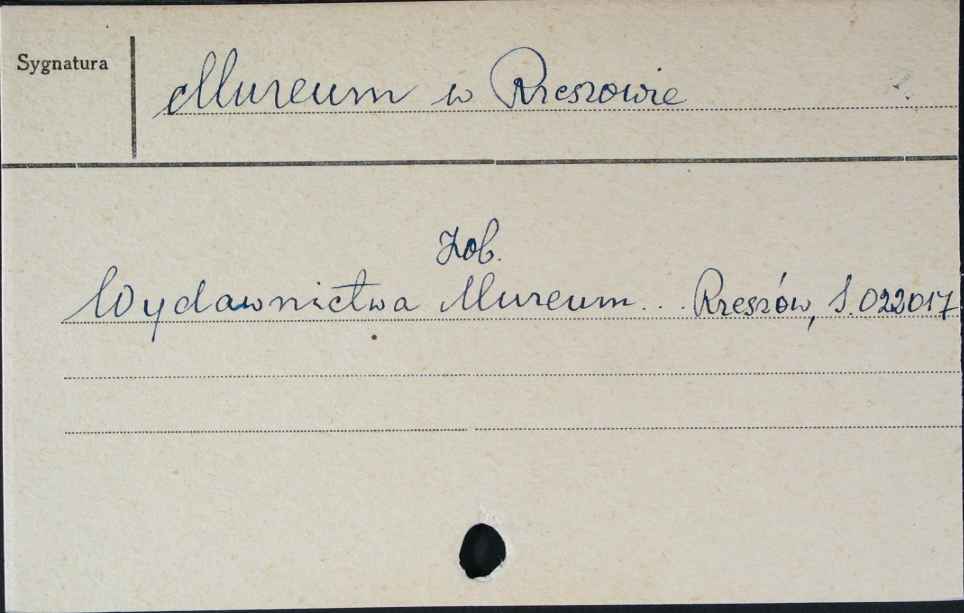 Sygnatura
Muzeum w Rzeszowie
Zob.
Wydawnictwa Muzeum... Rzeszów, S.022017